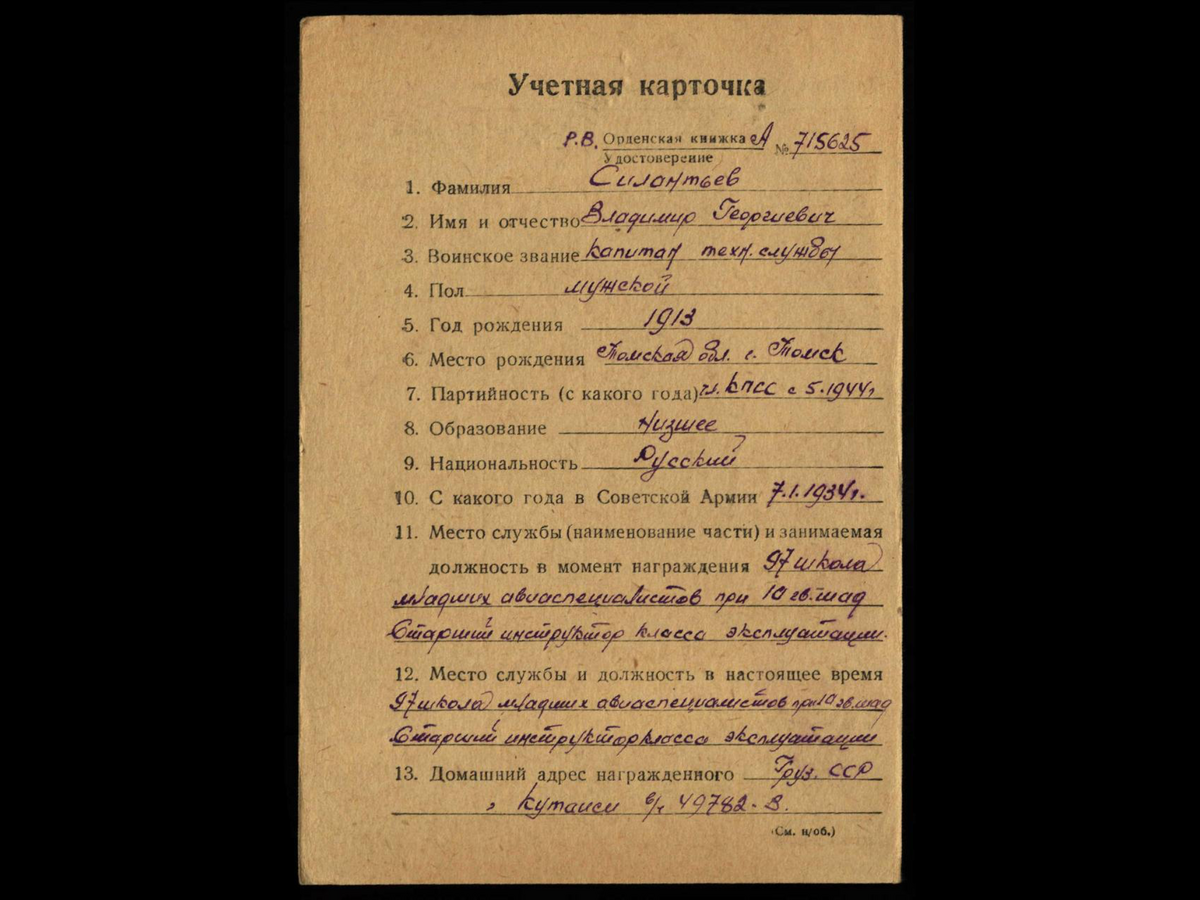 Учетная карточка
Р.В. Орденская книжка А № 715625
Удостоверение
1. Фамилия Силантьев
2. Имя и отчество Владимир Георгиевич
3. Воинское звание капитан техн. службы
4. Пол мужской
5. Год рождения 1913
6. Место рождения Томская обл. г. Томск
7. Партийность (с какого года) чл. КПСС с 5.1944г
8. Образование Низшее
9. Национальность Русский
10. С какого года в Советской Армии 7.1.1934г.
11. Место службы (наименование части) и занимаемая
должность в момент награждения 97 школа
младших авиаспециалистов при 10 гв. шад
Старший инструктор класса эксплуатации.
12. Место службы и должность в настоящее время
97 школа младших авиаспециалистов при 10 гв. шад
Старший инструктор класса эксплуатации
13. Домашний адрес награжденного Груз. ССР
г. Кутаиси в/ч 49782-В.
(См. н/об.)